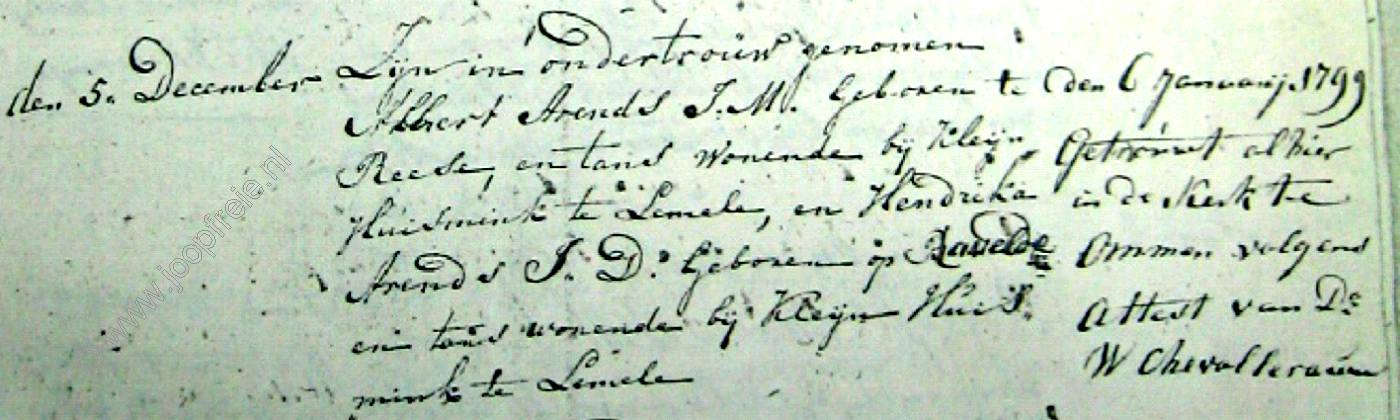 den 5. December
Zijn in ondertrouw genomen
Albert Arends J. M. Geboren te
Reese, en tans wonende bij Kleijn
Huismink te Lemele, en Hendrika
Arends J. D. Geboren op
en tans wonende bij Kleijn Huis-
mink te Lemele
den 6 Januarij 1799
Getrouwt alhier
in de Kerk te
Ommen volgens
Attest van Ds
W Chevallerauw
www.joopfreie.nl